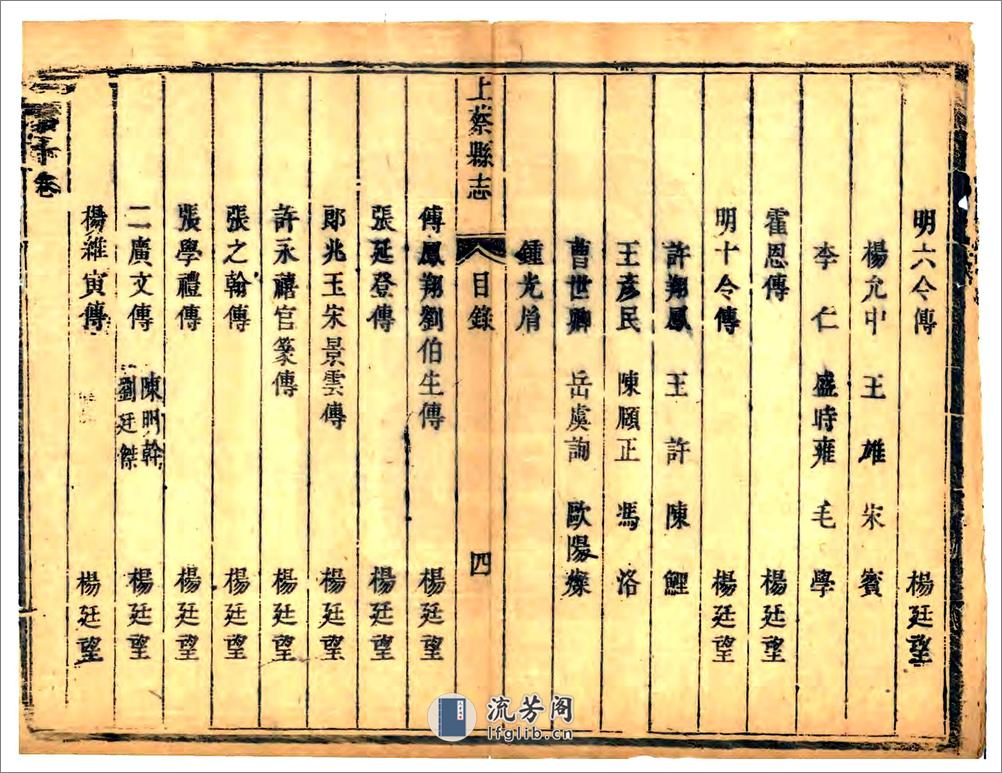 明六令傳 楊廷望
楊允中 王雄 宋賓
李仁 盛時雍 毛學
霍恩傳 楊廷望
明十令傳 楊廷望
許翔鳳 王許 陳鯉
王彥民 陳頤正 馮洛
曹世卿 岳虞詢 歐陽燦
鍾光
上蔡縣志 目錄 四
傅鳳翔劉伯生傳 楊廷望
張延登傳 楊廷望
郎兆玉宋景雲傳 楊廷望
許永禧官篆傳 楊廷望
張之翰傳 楊廷望
張學禮傳 楊廷望
二廣文傳 陳明幹 劉廷傑 楊廷望
楊維寅傳 楊廷望
卷
流芳阁
lfglib.cn